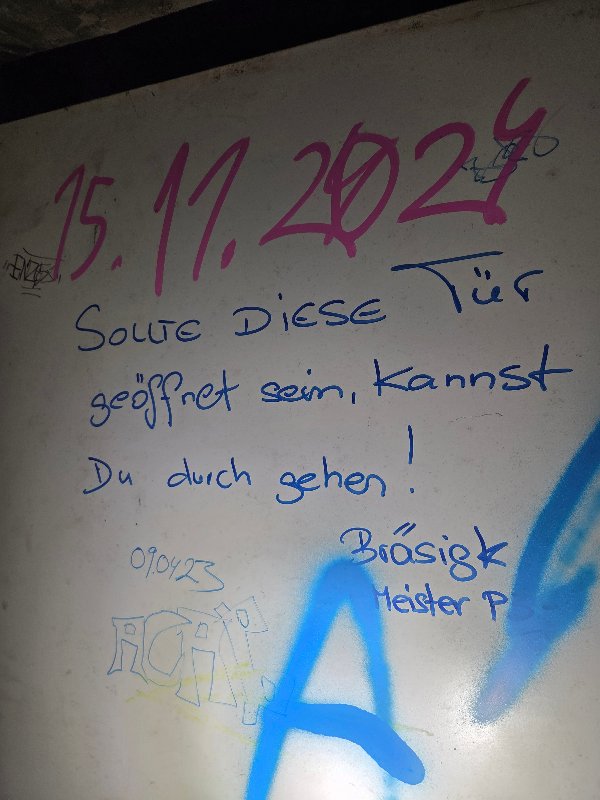 15.11.2024
SOLLTE DIESE Tür
geöffnet sein, kannst
Du durch gehen!
Bräsigk
Meister
09.04.23
A